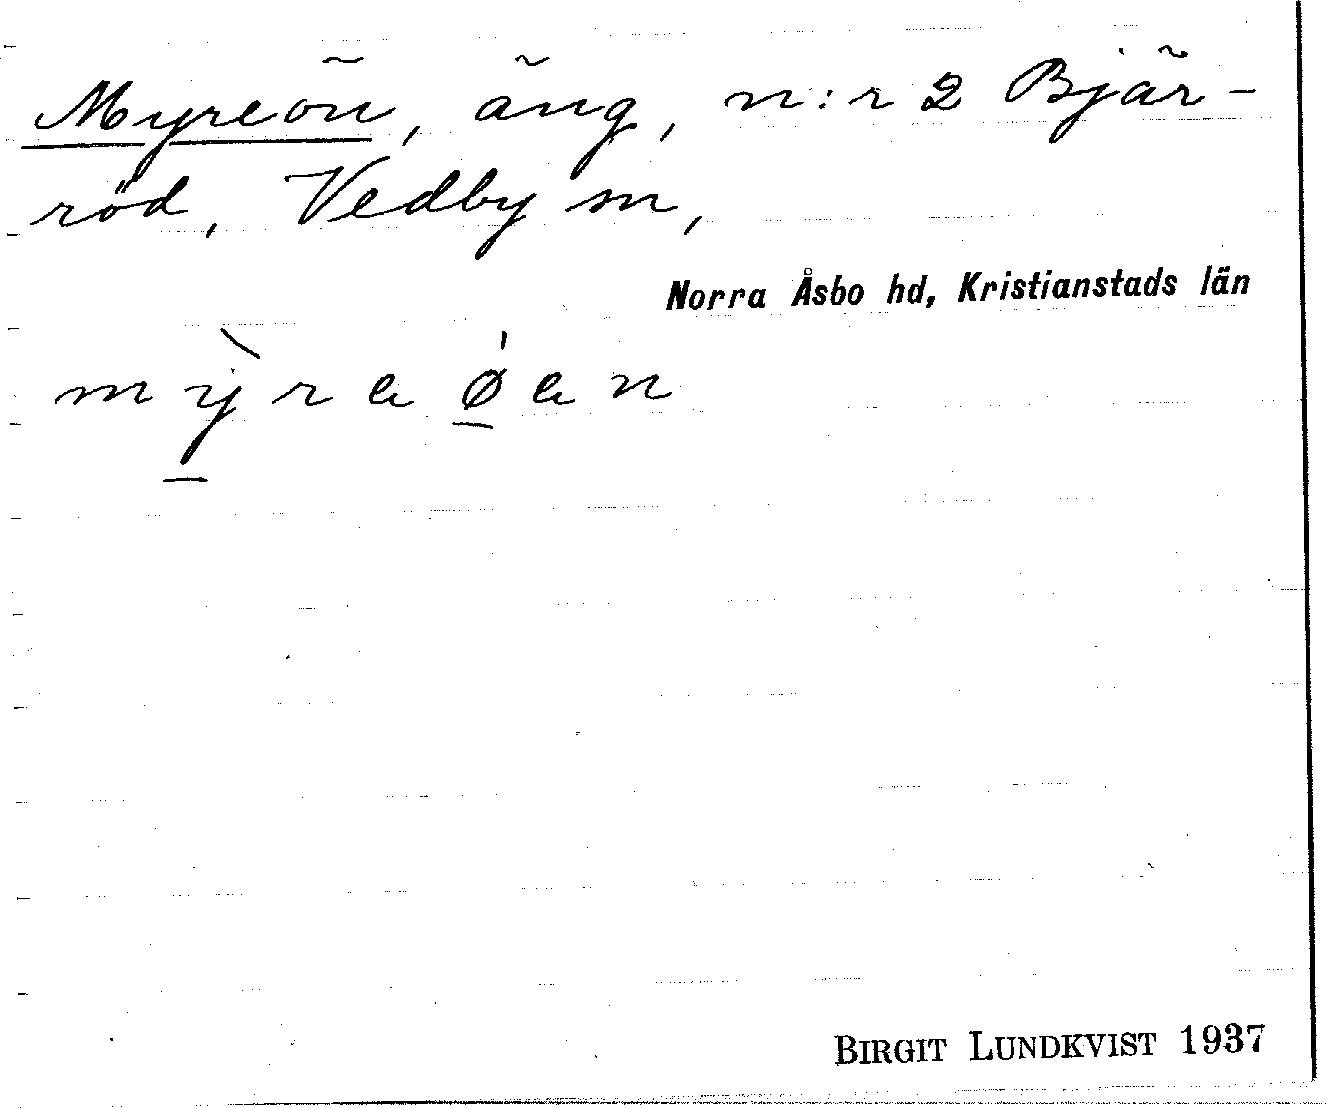 Myreön, äng, n:r 2 Bjär-
röd, Vedby sn,
Norra Åsbo hd, Kristianstads län
m ỳ r e ǿ e n
BIRGIT LUNDKVIST 1937